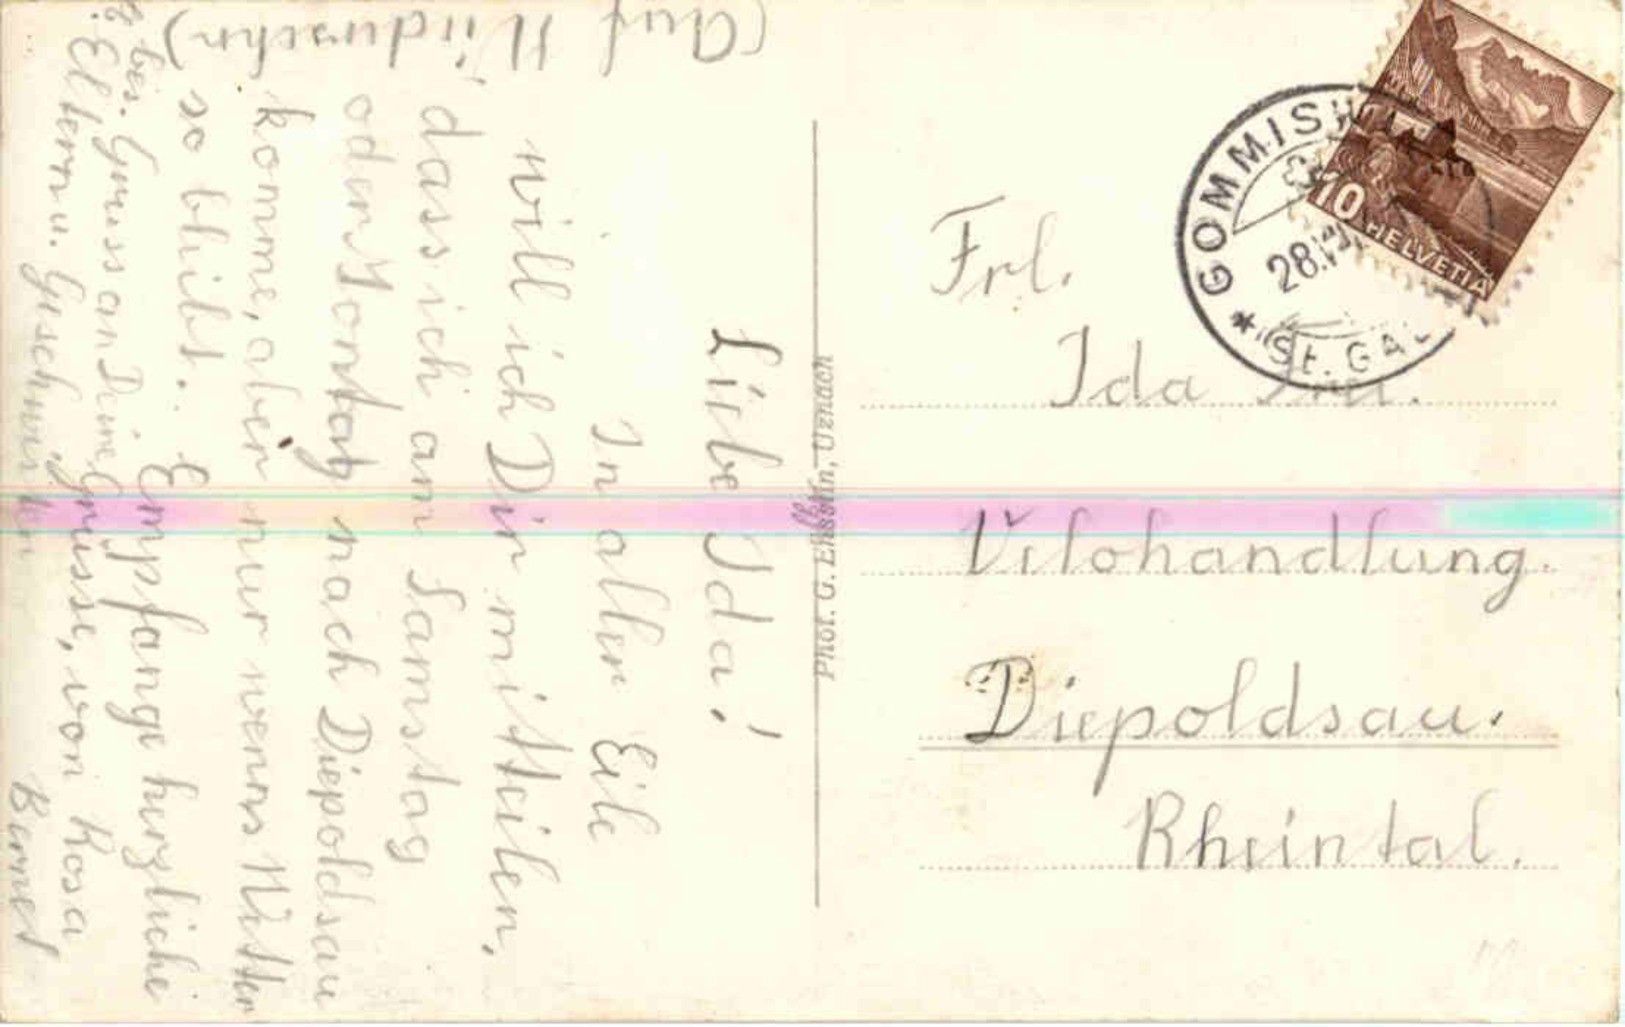 Liebe Ida!
In aller Eile
will ich Dir mitteilen,
dass ich am Samstag
oder Sontag nach Diepoldsau
komme, aber nur wenns Wetter
so bleibt. Empfange herzliche
Grüsse, von Rosa
Bernet
bes. Gruss an Deine
Eltern u. Geschwister
(Auf Widersehn)
Phot. G. Eberlin, Uznach
Frl.
Ida
Velohandlung.
Diepoldsau.
Rheintal.
GOMMISW
28.VII
St. GAL
10
HELVETIA